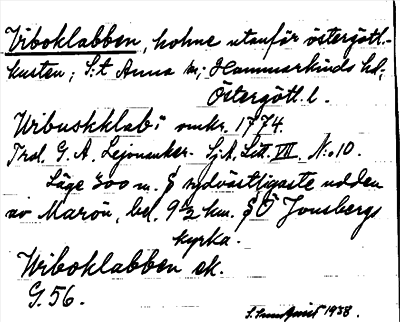 Viboklabben, holme utanför östergötl.-
kusten; S:t Anna sn; Hammarkinds hd;
Östergötl. l.
Wibuskklabi omkr. 1774.
Trol. G. A. Lejonanker. Sj.A. Litt. VII. N:o 10.
Läge 300 m. S sydvästligaste udden
av Marön, bel. 9½ km. S Ö Jonsbergs
kyrka.
Wiboklabben ek.
G. 56.
S. Sundquist 1938.